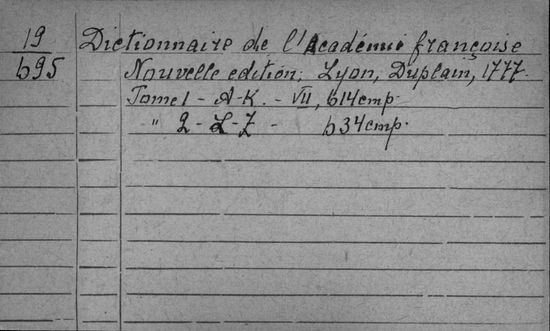 19 Dictionnaire de l'Académie françoise
695 Nouvelle edition; Lyon, Duplain, 1777.
Tome 1 - A-K. - VII, 614 cmp.
" 2 - L-Z - 634 cmp.